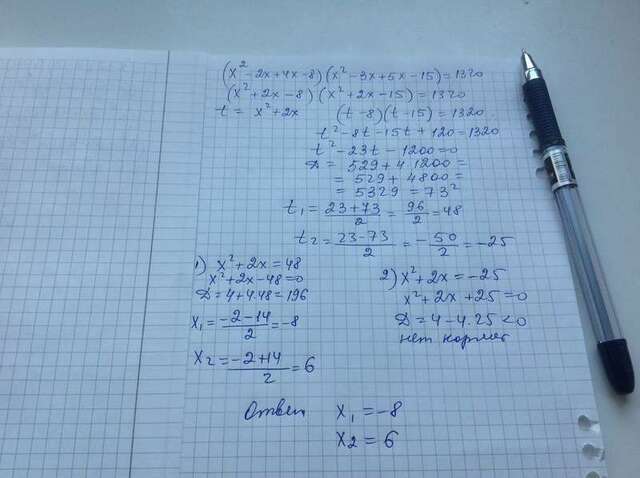 (x² - 2x + 4x - 8)(x² - 3x + 5x - 15) = 1320
(x² + 2x - 8)(x² + 2x - 15) = 1320
t = x² + 2x (t - 8)(t - 15) = 1320
t² - 8t - 15t + 120 = 1320
t² - 23t - 1200 = 0
D = 529 + 4·1200 =
= 529 + 4800 =
= 5329 = 73²
t₁ = (23+73)/2 = 96/2 = 48
t₂ = (23-73)/2 = -50/2 = -25
1) x² + 2x = 48
x² + 2x - 48 = 0
D = 4 + 4·48 = 196
x₁ = (-2-14)/2 = -8
x₂ = (-2+14)/2 = 6
2) x² + 2x = -25
x² + 2x + 25 = 0
D = 4 - 4·25 < 0
нет корней
Ответ x₁ = -8
x₂ = 6